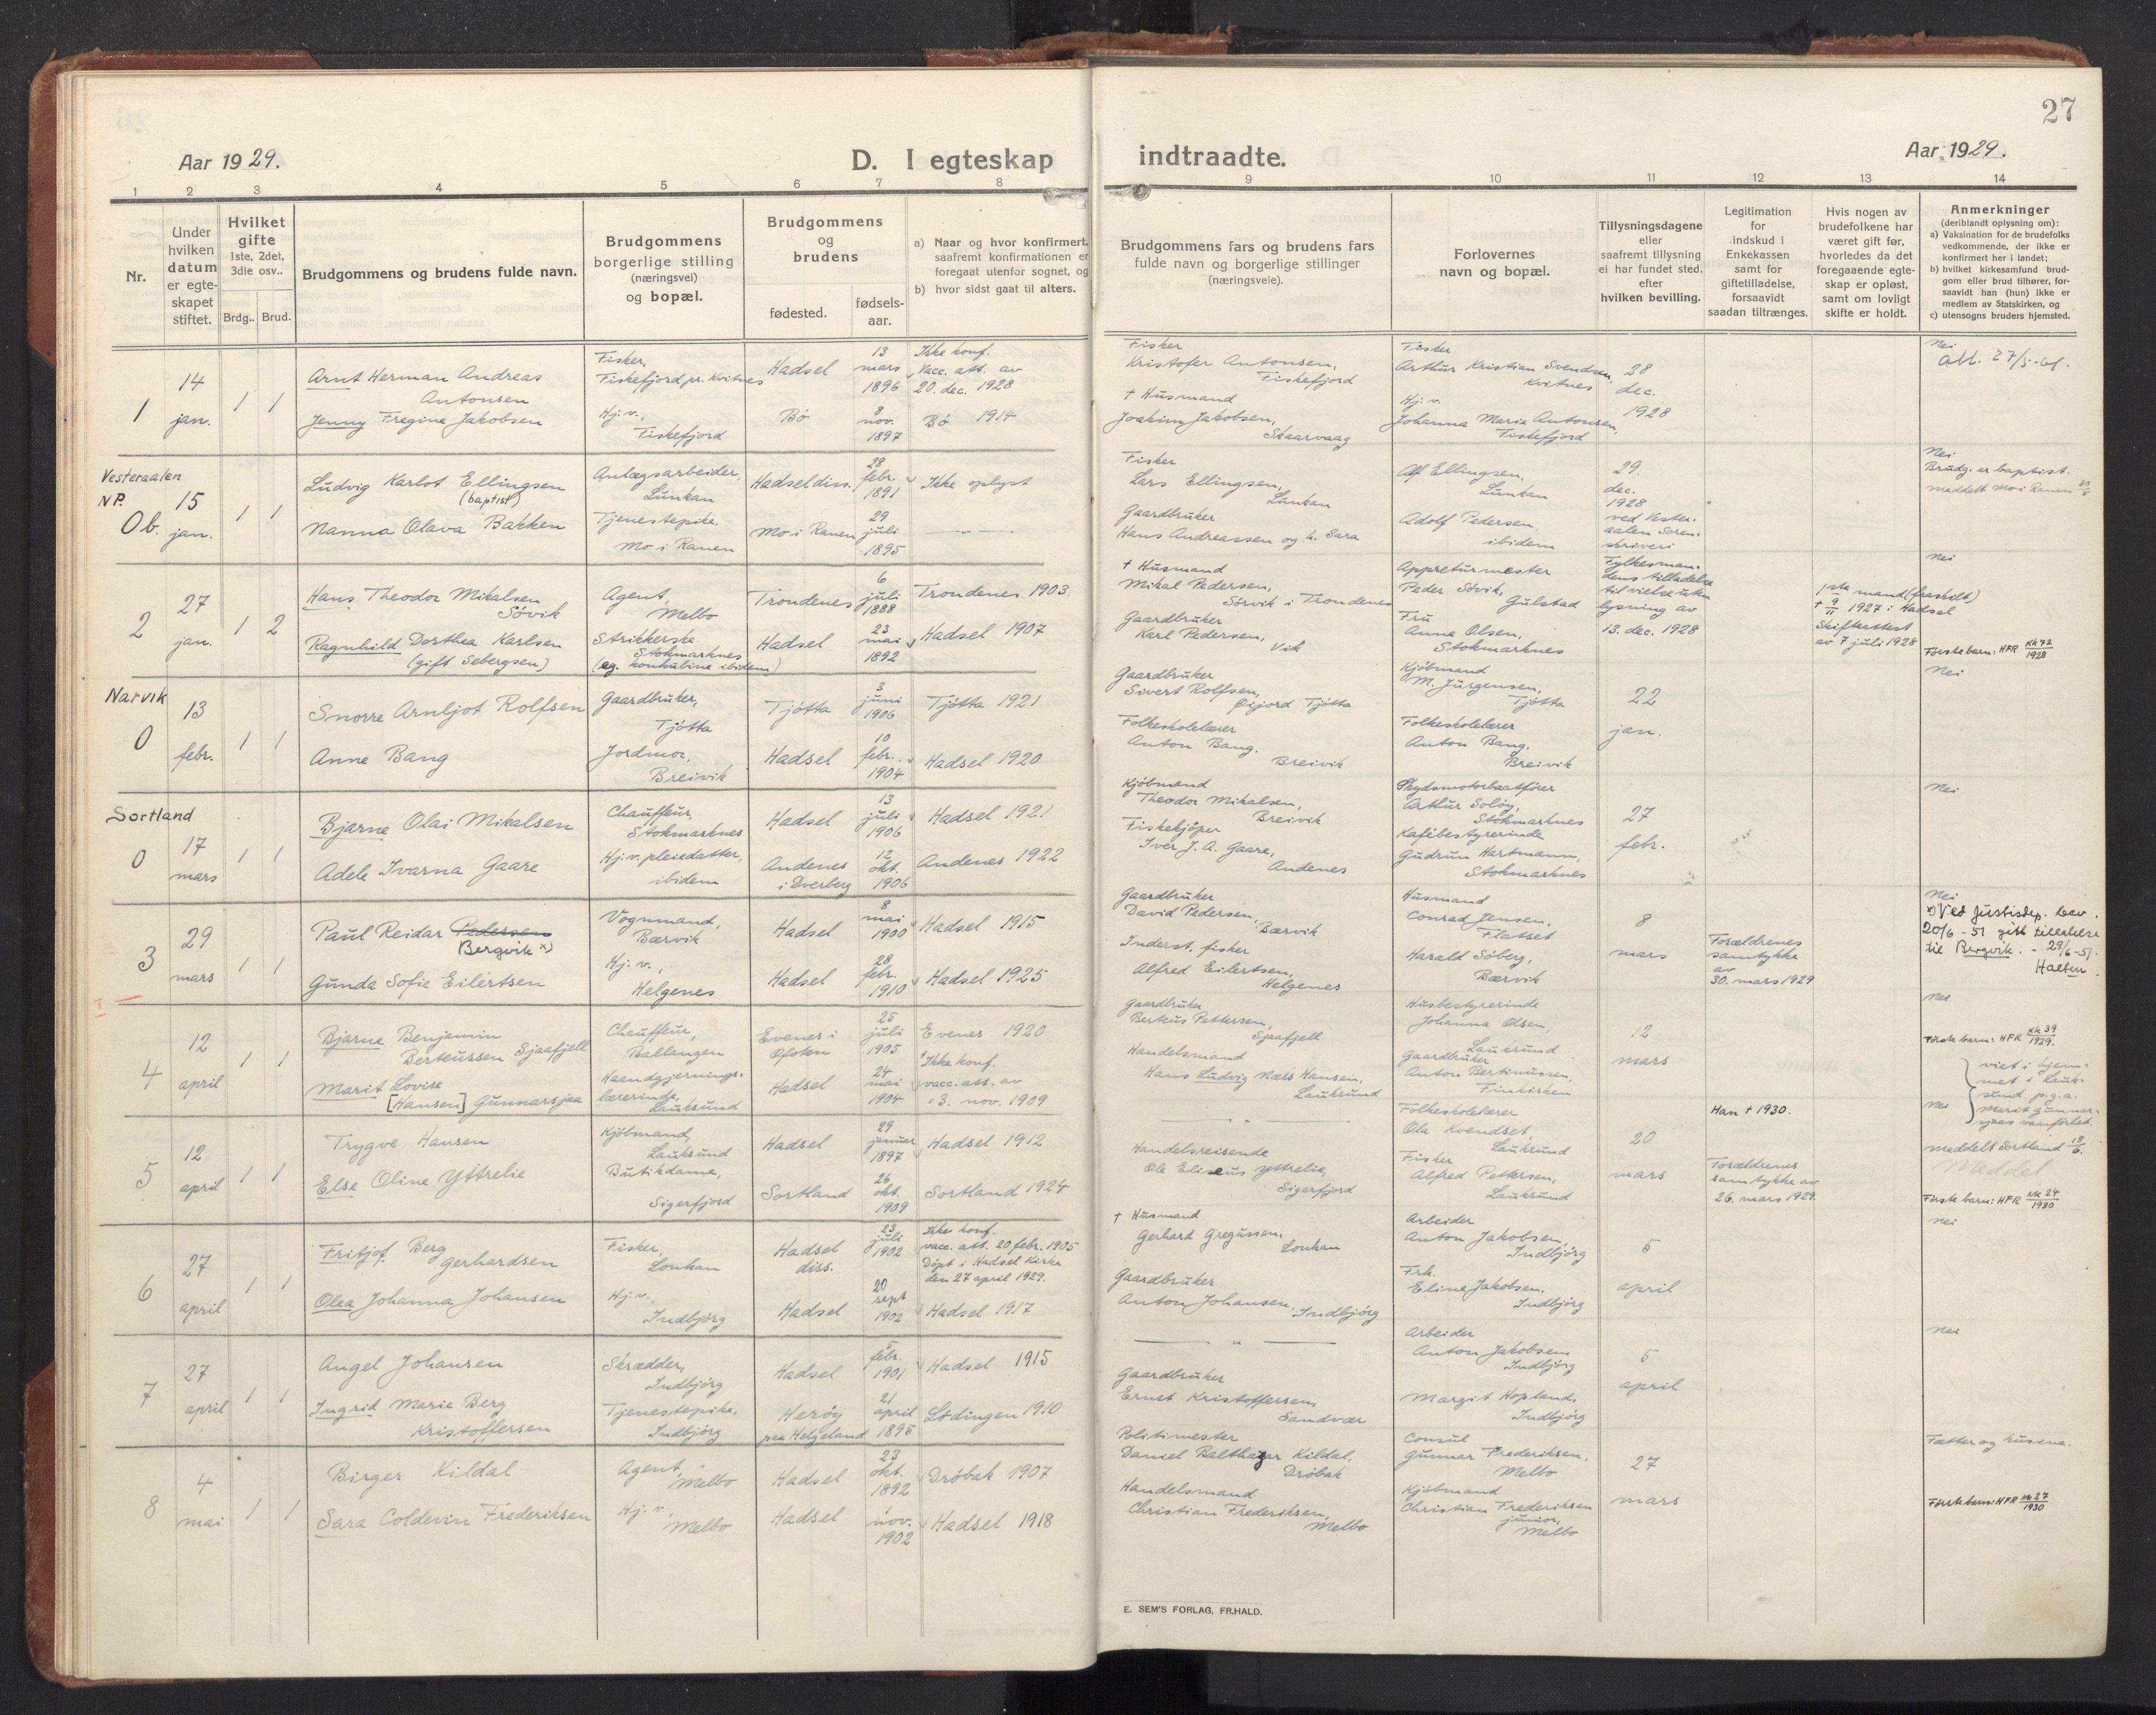 27
Aar 1929.
D. I egteskap
indtraadte.
Aar 1929.
1 2 3 4 5 6 7 8 9 10 11 12 13 14
Nr.
Under hvilken datum er egteskapet stiftet.
Hvilket gifte
1ste, 2det, 3die osv..
Brdg.. Brud.
Brudgommens og brudens fulde navn.
Brudgommens borgerlige stilling (næringsvei) og bopæl.
Brudgommens og brudens
fødested. fødsels-aar.
a) Naar og hvor konfirmert, saafremt konfirmationen er foregaat utenfor sognet, og
b) hvor sidst gaat til alters.
Brudgommens fars og brudens fars fulde navn og borgerlige stillinger (næringsveie).
Forlovernes navn og bopæl.
Tillysningsdagene eller saafremt tillysning ei har fundet sted. efter hvilken bevilling.
Legitimation for indskud i Enkekassen samt for giftetilladelse, forsaavidt saadan tiltrænges.
Hvis nogen av brudefolkene har været gift før, hvorledes da det foregaaende egteskap er opløst, samt om lovligt skifte er holdt.
Anmerkninger
(deriblandt oplysning om):
a) Vaksination for de brudefolks vedkommende, der ikke er konfirmert her i landet;
b) hvilket kirkesamfund brudgom eller brud tilhører, forsaavidt han (hun) ikke er medlem av Statskirken, og
c) utensogns bruders hjemsted.
1
14 jan.
1 1
Arnt Herman Andreas Antonsen
Fisker, Fiskefjord pr. Kvitnes
Hadsel
13 mars 1896
Ikke konf. Vacc. att. av 20. dec. 1928
Fisker Kristofer Antonsen, Fiskefjord
Fisker Arthur Kristian Svendsen, Kvitnes
28 dec. 1928
Nei
att. 27/5-61.
Jenny Fregine Jakobsen
Hj. v., Fiskefjord
Bø
8 nov. 1897
Bø 1914
† Husmand Joakim Jakobsen, Skaarvaag
Hj. v. Johanna Marie Antonsen, Fiskefjord
Vesteraalen NP.
0 b.
15 jan.
1 1
Ludvig Karlot Ellingsen (baptist)
Anlægsarbeider, Lunkan
Hadsel diss.
28 febr. 1891
Ikke oplyst
Fisker Lars Ellingsen, Lunkan
Alf Ellingsen, Lunkan
29. dec. 1928 ved Vesteraalen Sorenskriveri
Nei
Brudg. er baptist.
meddelt Mo i Ranen 30/5
Nanna Olava Bakken
Tjenestepike, Mo i Ranen
Mo i Ranen
29 juli 1895
— " —
Gaardbruker Hans Andreassen og h. Sara
Adolf Pedersen, ibidem
2
27 jan.
1 2
Hans Theodor Mikalsen Søvik
Agent, Melbo
Trondenes
6 juli 1888
Trondenes 1903
† Husmand Mikal Pedersen, Sørvik i Trondenes
Appreturmester Peder Søvik, Gulstad
Fylkesmandens tilladelse til vielse uten lysning av 13. dec. 1928
1ste mand (fraskilt) † 9/11 1927 i Hadsel
Skifteattest av 7 juli 1928
Nei
Første barn: HFR Kk 72/1928
Ragnhild Dorthea Karlsen (gift Sebergsen)
Strikkerske Stokmarknes (eg. konkubine ibidem)
Hadsel
23 mai 1892
Hadsel 1907
Gaardbruker Karl Pedersen, Vik
Fru Anna Olsen, Stokmarknes
Narvik
0
13 febr.
1 1
Snorre Arnljot Rolfsen
Gaardbruker, Tjøtta
Tjøtta
3 juni 1906
Tjøtta 1921
Gaardbruker Sivert Rolfsen, Øijord Tjøtta
Kjøbmand M. Jürgensen, Tjøtta
22 jan.
Nei
Anne Bang
Jordmor, Breivik
Hadsel
10 febr. 1904
Hadsel 1920
Folkeskolelærer Anton Bang. Breivik
Folkeskolelærer Anton Bang. Breivik
Sortland
0
17 mars
1 1
Bjarne Olai Mikalsen
Chauffeur, Stokmarknes
Hadsel
13 juli 1906
Hadsel 1921
Kjøbmand Theodor Mikalsen, Breivik
Skydsmotorbaatfører Arthur Soløy, Stokmarknes
27 febr.
Nei
Adele Ivarna Gaare
Hj. v. pleiedatter, ibidem
Andenes i Dverberg
12 okt. 1906
Andenes 1922
Fiskekjøper Iver J. A. Gaare, Andenes
Kafébestyrerinde Gudrun Hartmann, Stokmarknes
3
29 mars
1 1
Paul Reidar Pedersen Bergvik x)
Vognmand, Bærvik
Hadsel
8 mai 1900
Hadsel 1915
Gaardbruker David Pedersen, Bærvik
Husmand Conrad Jensen, Flatset
8 mars
Forældrenes samtykke av 30. mars 1929
Nei
x) Ved Justisdep. bev. 20/6-51 gitt tillatelse til Bergvik. - 29/6-51. Halten.
Gunda Sofie Eilertsen
Hj. v., Helgenes
Hadsel
28 febr. 1910
Hadsel 1925
Inderst, fisker Alfred Eilertsen, Helgenes
Harald Søberg, Bærvik
4
12 april
1 1
Bjarne Benjamin Berteussen Sjaafjell
Chauffeur, Ballangen
Evenes i Ofoten
25 juli 1905
Evenes 1920
Gaardbruker Berteus Pettersen, Sjaafjell
Husbestyrerinde Johanna Olsen, Lauksund
12 mars
Nei
Første barn: HFR Kk 39/1929.
viet i hjemmet i Lauksund p.g.a. Marit Gunnarsjaas vanførhet.
Marit Lovise [Hansen] Gunnarsjaa
Haandgjerningslærerinde, Lauksund
Hadsel
24 mai 1904
Ikke konf. vacc. att. av 3. nov. 1909
Handelsmand Hans Ludvig Næss Hansen, Lauksund
Gaardbruker Anton Bertinussen, Finkirken
5
12 april
1 1
Trygve Hansen
Kjøbmand, Lauksund
Hadsel
29 januar 1897
Hadsel 1912
— " —
Folkeskolelærer Ola Kvendset, Lauksund
20 mars
Han † 1930.
Forældrenes samtykke av 26. mars 1929.
Nei
meddelt Sortland 18/6.
Meddel
Første barn: HFR Kk 24/1930
Else Oline Yttrelie
Butikdame, Sigerfjord
Sortland
26 okt. 1909
Sortland 1924
Handelsreisende Ole Eliseus Yttrelie, Sigerfjord
Fisker Alfred Pettersen, Lauksund
6
27 april
1 1
Fritjof Berg Gerhardsen
Fisker, Lonkan
Hadsel diss.
23 juli 1902
Ikke konf. vacc. att. 20 febr. 1905 Døpt i Hadsel Kirke den 27 april 1929.
† Husmand Gerhard Gregussen, Lonkan
Arbeider Anton Jakobsen, Indbjørg
5 april
Nei
Olea Johanna Johansen
Hj. v., Indbjørg
Hadsel
20 sept 1902
Hadsel 1917
Gaardbruker Anton Johansen, Indbjørg
Frk. Eline Jakobsen, Indbjørg
7
27 april
1 1
Angel Johansen
Skrædder, Indbjørg
Hadsel
5 febr. 1901
Hadsel 1915
— " —
Arbeider Anton Jakobsen, Indbjørg
5 april
Nei
Ingrid Marie Berg Kristoffersen
Tjenestepike, Indbjørg
Herøy paa Helgeland
21 april 1895
Lødingen 1910
Gaardbruker Ernst Kristoffersen, Sandvær
Margit Hopland, Indbjørg
8
4 mai
1 1
Birger Kildal
Agent, Melbo
Hadsel
23 okt. 1892
Drøbak 1907
Politimester Daniel Balthazar Kildal, Drøbak
Consul Gunnar Frederiksen, Melbo
27 mars
Fætter og kusene.
Første barn: HFR Kk 27/1930
Sara Coldevin Frederiksen
Hj. v., Melbo
Hadsel
1 nov. 1902
Hadsel 1918
Handelsmand Christian Frederiksen, Melbo
Kjøbmand Christian Frederiksen junior, Melbo
E. SEM'S FORLAG, FR.HALD.